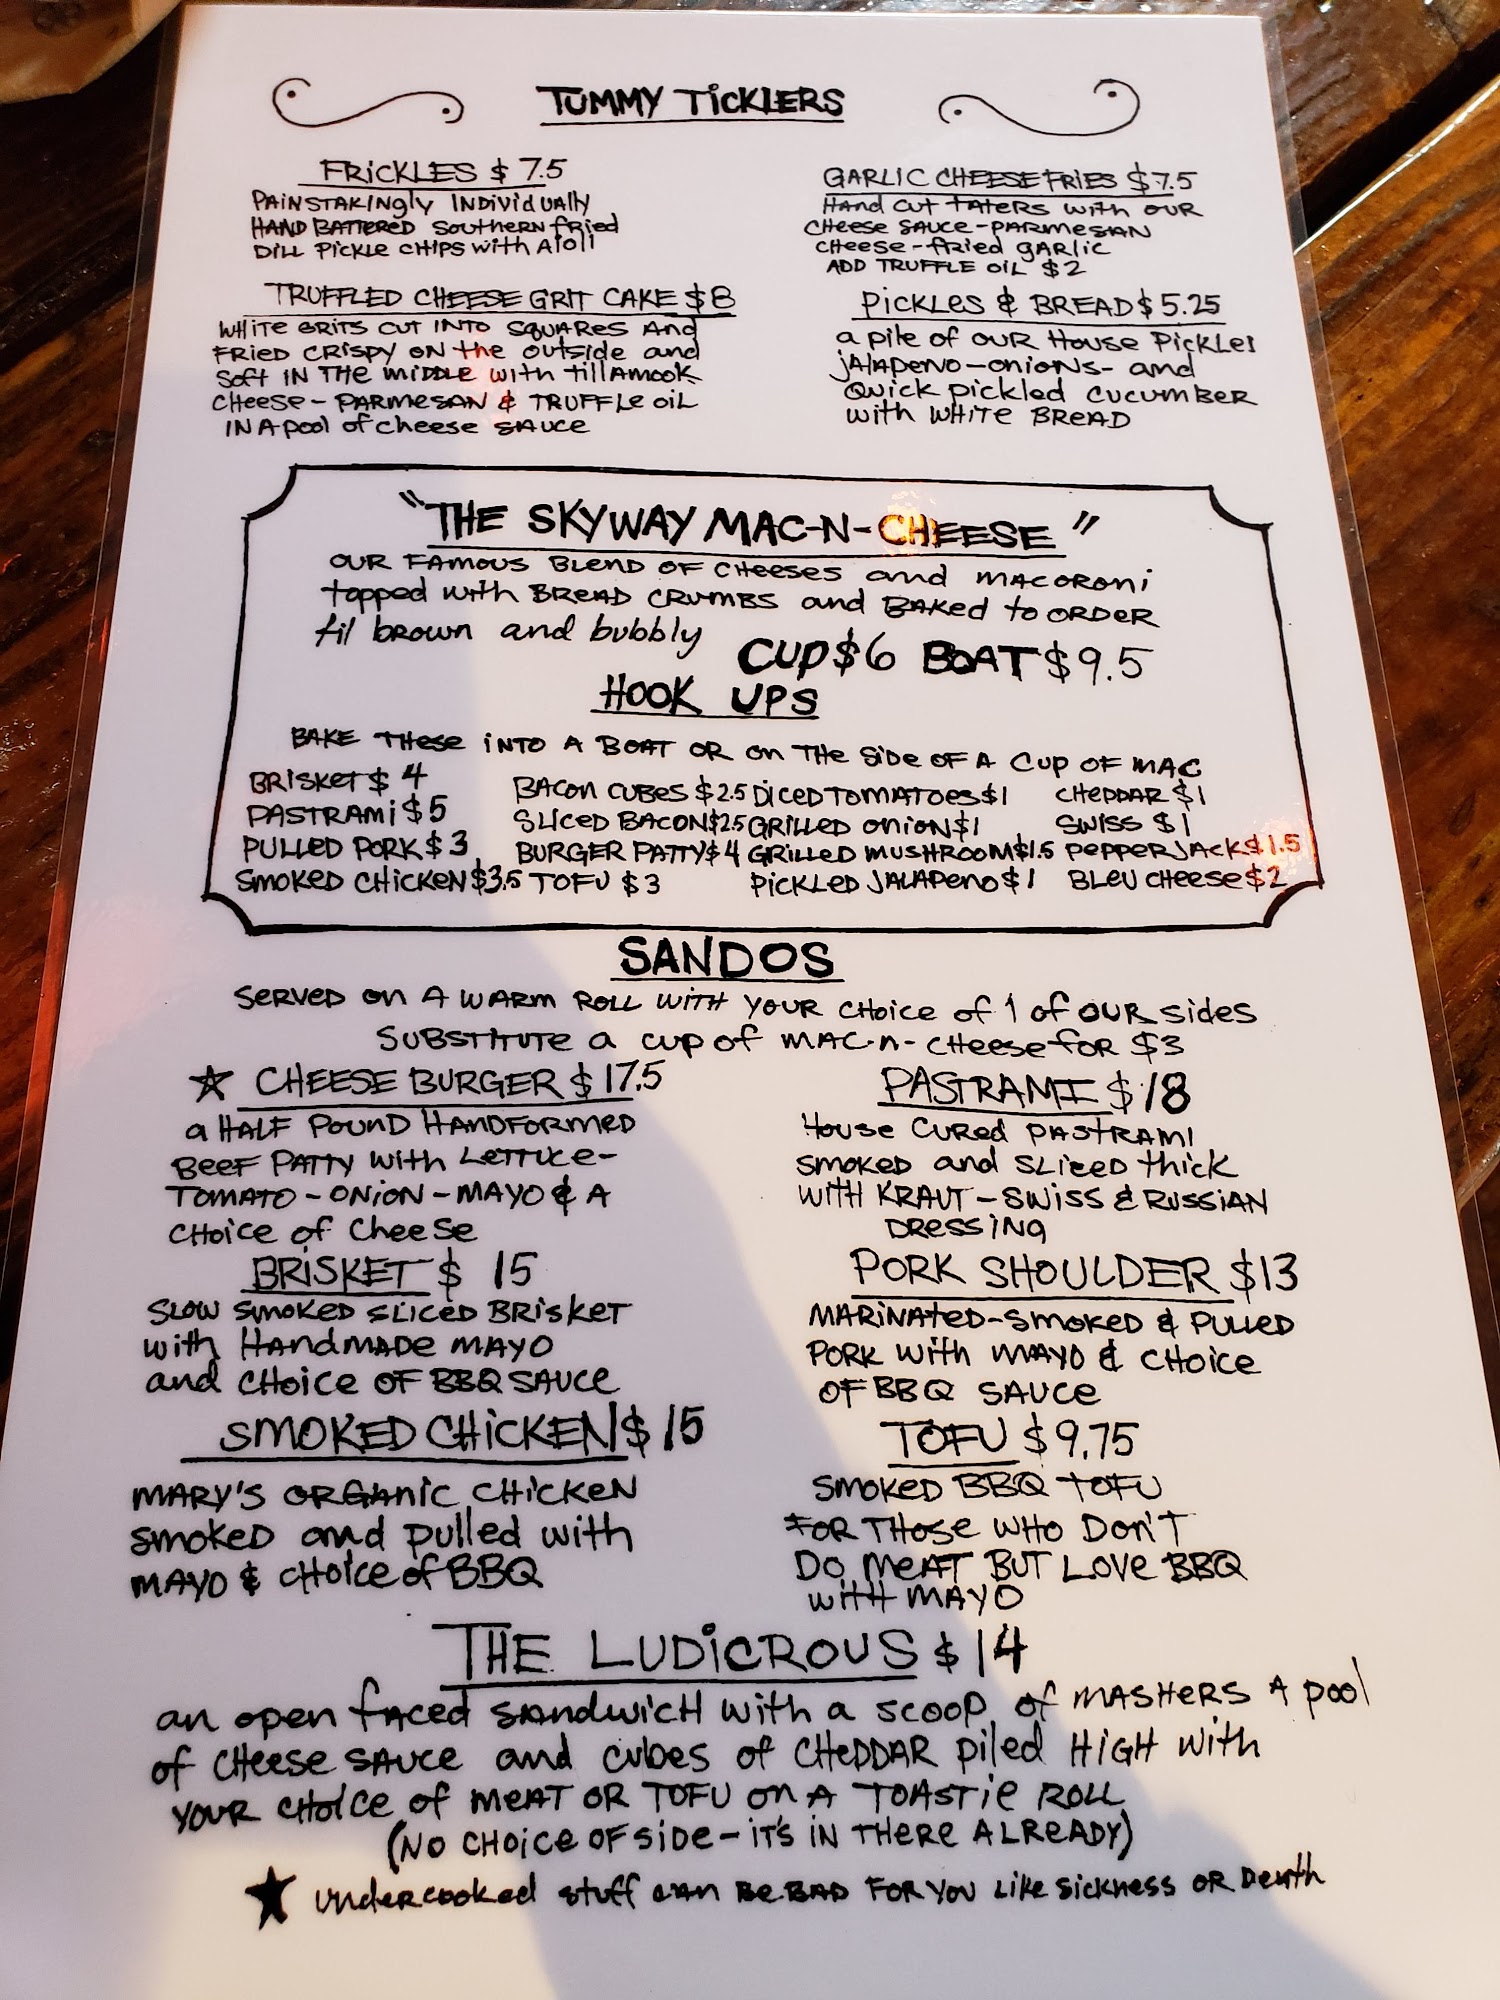 TUMMY TICKLERS
FRICKLES $7.5
PAINSTAKINGLY INDIVIDUALLY
HAND BATTERED SOUTHERN FRIED
DILL PICKLE CHIPS WITH AIOLI
TRUFFLED CHEESE GRIT CAKE $8
WHITE GRITS CUT INTO SQUARES AND
FRIED CRISPY ON THE OUTSIDE AND
SOFT IN THE MIDDLE WITH TILLAMOOK
CHEESE - PARMESAN & TRUFFLE OIL
IN A POOL OF CHEESE SAUCE
GARLIC CHEESE FRIES $7.5
HAND CUT TATERS WITH OUR
CHEESE SAUCE - PARMESAN
CHEESE - FRIED GARLIC
ADD TRUFFLE OIL $2
PICKLES & BREAD $5.25
A PILE OF OUR HOUSE PICKLES
JALAPENO - ONIONS - AND
QUICK PICKLED CUCUMBER
WITH WHITE BREAD
"THE SKYWAY MAC-N-CHEESE"
OUR FAMOUS BLEND OF CHEESES AND MACORONI
TOPPED WITH BREAD CRUMBS AND BAKED TO ORDER
TIL BROWN AND BUBBLY CUP $6 BOAT $9.5
HOOK UPS
BAKE THESE INTO A BOAT OR ON THE SIDE OF A CUP OF MAC
BRISKET $4
PASTRAMI $5
PULLED PORK $3
SMOKED CHICKEN $3.5
BACON CUBES $2.5
SLICED BACON $2.5
BURGER PATTY $4
TOFU $3
DICED TOMATOES $1
GRILLED ONION $1
GRILLED MUSHROOM $1.5
PICKLED JALAPENO $1
CHEDDAR $1
SWISS $1
PEPPERJACK $1.5
BLEU CHEESE $2
SANDOS
SERVED ON A WARM ROLL WITH YOUR CHOICE OF 1 OF OUR SIDES
SUBSTITUTE A CUP OF MAC-N-CHEESE FOR $3
★ CHEESE BURGER $17.5
A HALF POUND HANDFORMED
BEEF PATTY WITH LETTUCE -
TOMATO - ONION - MAYO & A
CHOICE OF CHEESE
BRISKET $15
SLOW SMOKED SLICED BRISKET
WITH HANDMADE MAYO
AND CHOICE OF BBQ SAUCE
SMOKED CHICKEN $15
MARY'S ORGANIC CHICKEN
SMOKED AND PULLED WITH
MAYO & CHOICE OF BBQ
PASTRAMI $18
HOUSE CURED PASTRAMI
SMOKED AND SLICED THICK
WITH KRAUT - SWISS & RUSSIAN
DRESSING
PORK SHOULDER $13
MARINATED - SMOKED & PULLED
PORK WITH MAYO & CHOICE
OF BBQ SAUCE
TOFU $9.75
SMOKED BBQ TOFU
FOR THOSE WHO DON'T
DO MEAT BUT LOVE BBQ
WITH MAYO
THE LUDICROUS $14
AN OPEN FACED SANDWICH WITH A SCOOP OF MASHERS A POOL
OF CHEESE SAUCE AND CUBES OF CHEDDAR PILED HIGH WITH
YOUR CHOICE OF MEAT OR TOFU ON A TOASTIE ROLL
(NO CHOICE OF SIDE - IT'S IN THERE ALREADY)
★ UNDERCOOKED STUFF CAN BE BAD FOR YOU LIKE SICKNESS OR DEATH